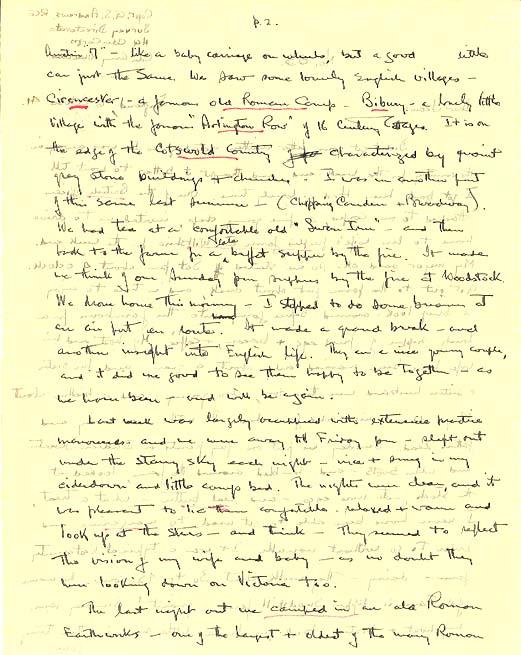 p.2.
Austin 7" - like a baby carriage on wheels, but a good little
car just the same. We saw some lovely English villages -
Cirencester, - a famous old Roman Camp - Bibury - a lovely little
village with the famous "Arlington Row" of 16 Century Cottages. It is on
the edge of the Cotswold Country characterized by quaint
grey stone buildings + churches. I was in another part
of this same last summer - (Chipping Camden + Broadway).
We had tea at a comfortable old "Swan Inn" - and then
back to the farm for a late buffet supper by the fire. It made
me think of our Sunday pm suppers by the fire at Woodstock.
We drove home this morning - I stopped to do some business at
an air port en route. It made a grand break - and
another insight into English life. They are a nice young couple,
and it did me good to see them happy to be together - as
we have been - and will be again.
Last week was largely occupied with extensive practice
manoeuvres and we were away till Friday pm - slept out
under the starry sky each night - nice + snug in my
eiderdown and little camp bed. The nights were clear, and it
was pleasant to lie there comfortable - relaxed + warm and
look up at the stars - and think - They seemed to reflect
the vision of my wife and baby - as no doubt they
were looking down on Victoria too.
The last night out we camped in an old Roman
Earthworks - one of the largest + oldest of the many Roman